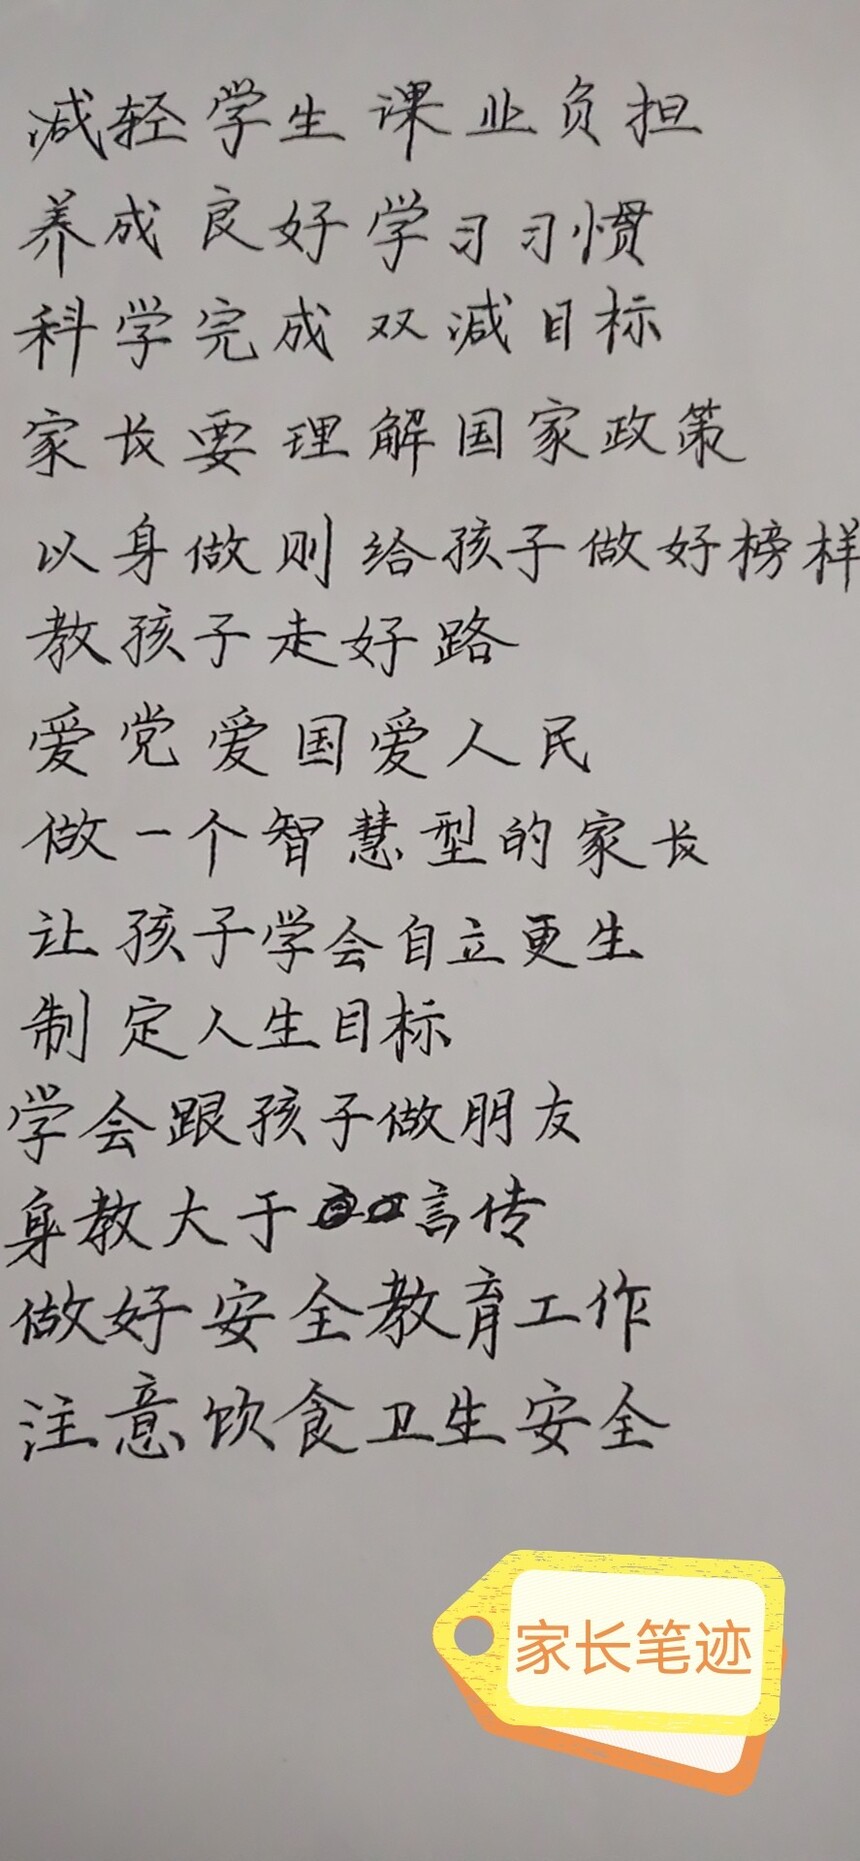 减轻学生课业负担
养成良好学习习惯
科学完成双减目标
家长要理解国家政策
以身做则给孩子做好榜样
教孩子走好路
爱党爱国爱人民
做一个智慧型的家长
让孩子学会自立更生
制定人生目标
学会跟孩子做朋友
身教大于言传
做好安全教育工作
注意饮食卫生安全
家长笔迹